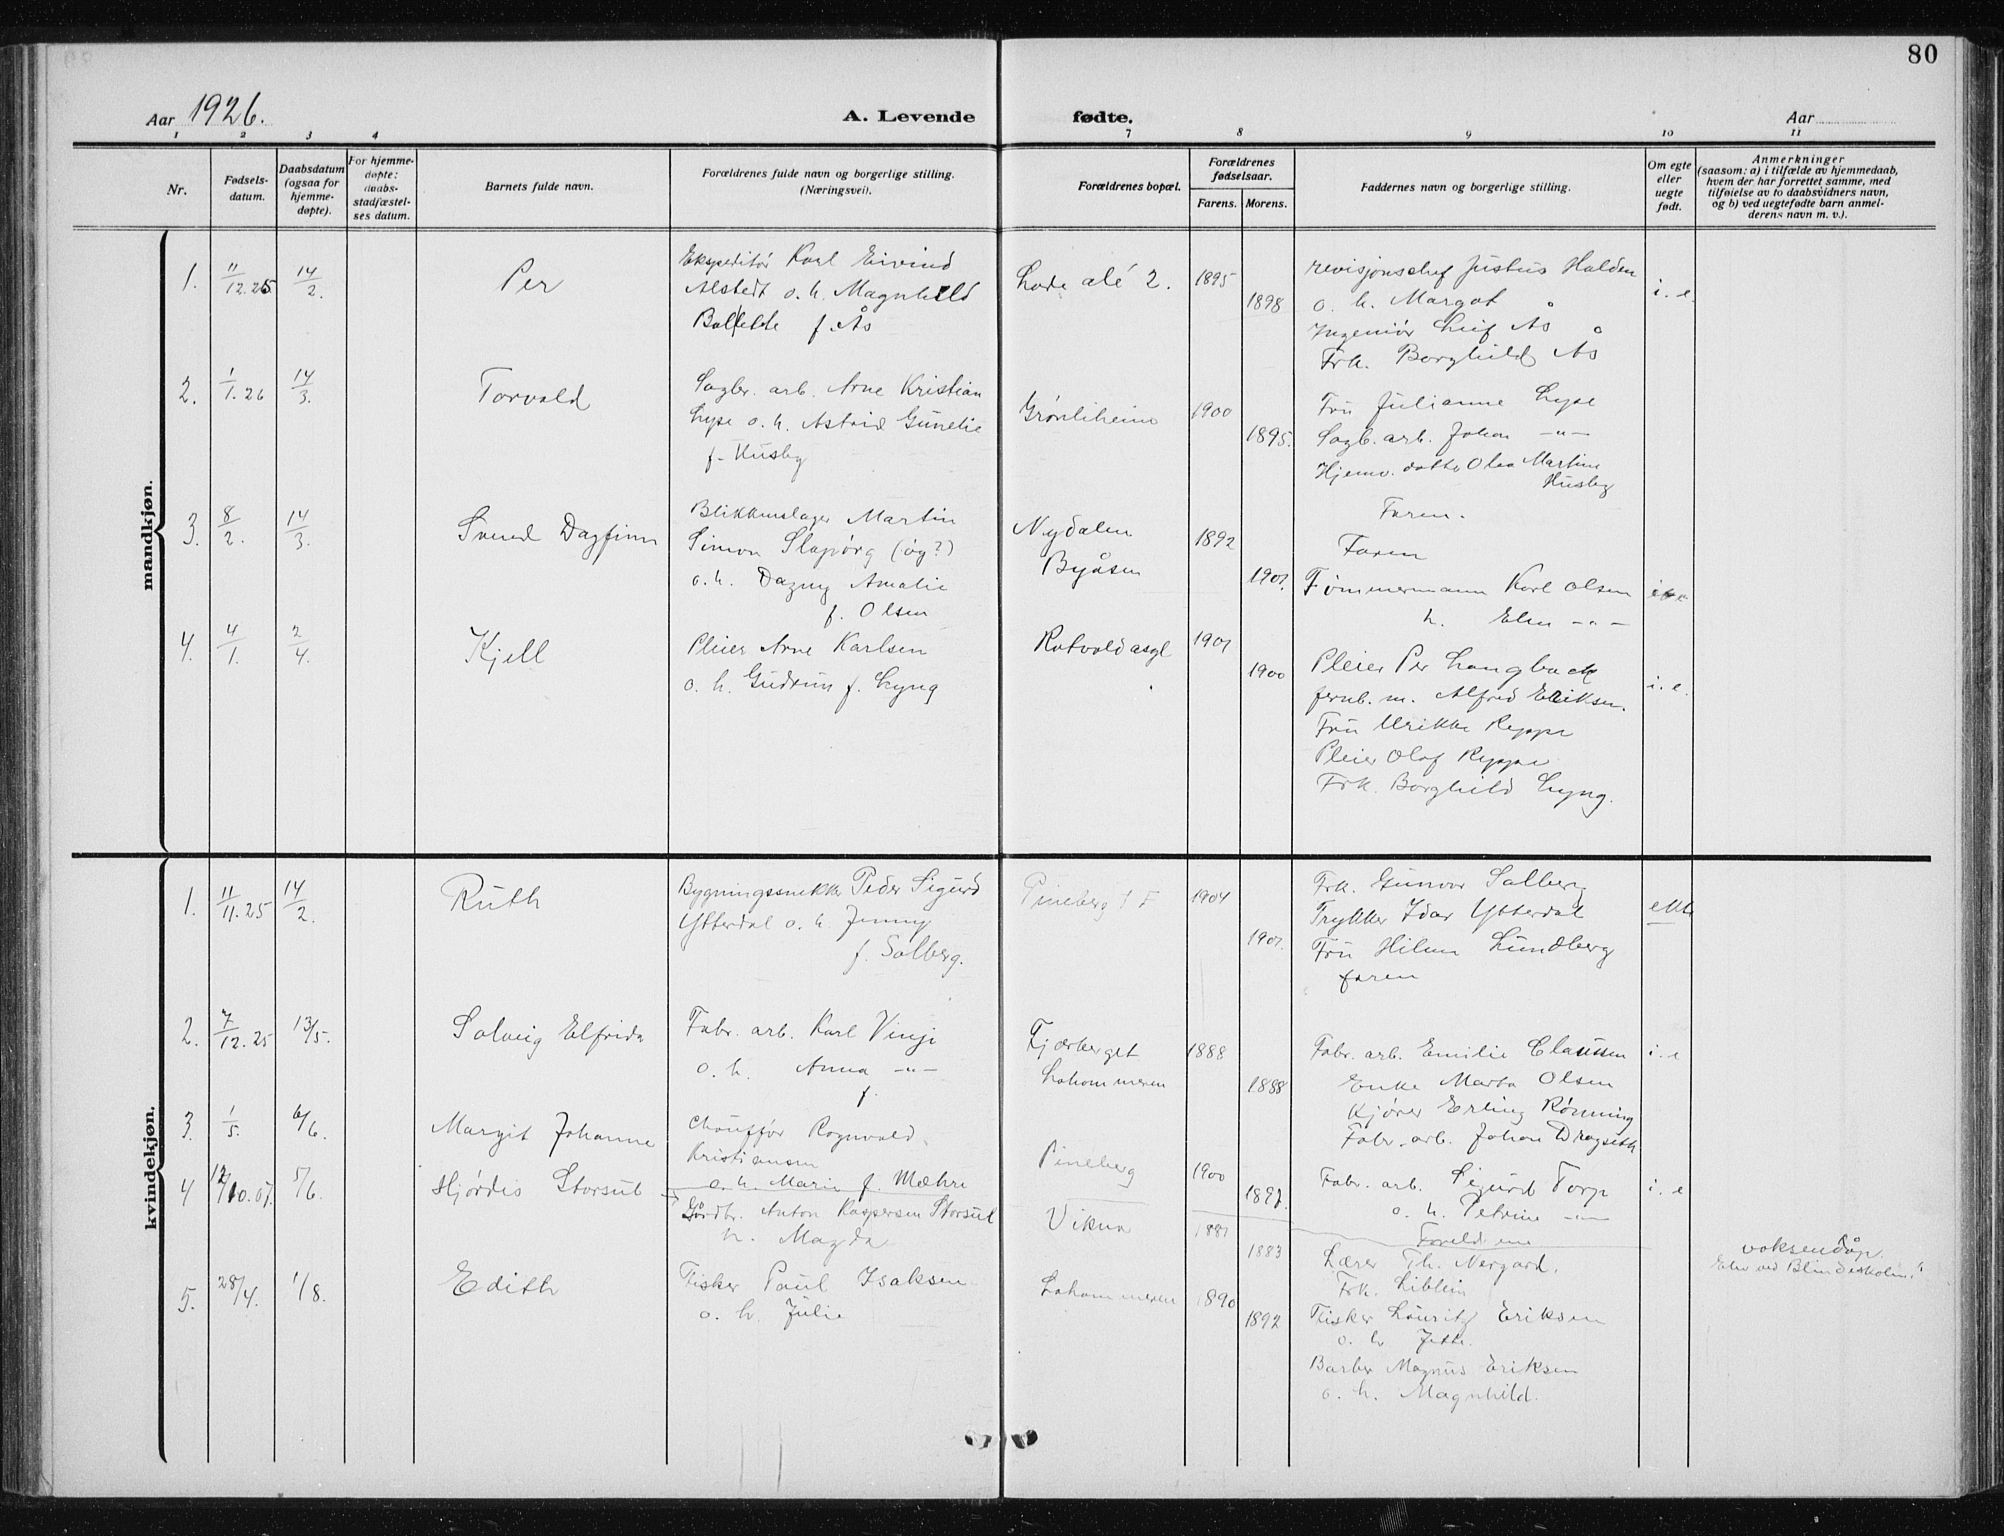 80
Aar 1926.
A. Levende fødte.
Aar
1 2 3 4 7 8 9 10 11
Nr.
Fødsels-
datum.
Daabsdatum
(ogsaa for
hjemme-
døpte).
For hjemme-
døpte:
daabs-
stadfæstel-
ses datum.
Barnets fulde navn.
Forældrenes fulde navn og borgerlige stilling.
(Næringsvei).
Forældrenes bopæl.
Forældrenes
fødselsaar.
Farens. Morens.
Faddernes navn og borgerlige stilling.
Om egte
eller
uegte
født.
Anmerkninger
(saasom: a) i tilfælde av hjemmedaab,
hvem der har forrettet samme, med
tilføielse av to daabsvidners navn,
og b) ved uegtefødte barn anmel-
derens navn m. v.).
mandkjøn.
1. 11/12.25 14/2. Per
Ekspeditør Karl Eivind
Alstedt o. h. Magnhild
f. Ås
Lade alé 2. 1895 1898
revisjonschef Justus Halden
o. h. Margot
Ingeniør Leif Ås
Frk. Borghild Ås
i. e.
2. 1/1.26 14/3. Torvald
Sagbr. arb. Arne Kristian
Lype o. h. Astrid Gunelie
f. Husby
Grønliheim 1900 1895.
Fru Julianne Lype
Sagb. arb. Johan -"-
Hjemv. datter Olea Martine
Husby
Faren.
3. 8/2. 14/3. Svend Dagfinn
Blikkenslager Martin
Simon Slapørg (øg?)
o. h. Dagny Amalie
f. Olsen
Nydalen
Byåsen
1892 1901.
Faren
Tømmermann Karl Olsen
h. Elen -"-
4. 4/1. 2/4. Kjell
Pleier Arne Karlsen
o. h. Gudrun f. Lyng
Rotvold asyl 1901 1900
Pleier Per Langback
fernb. m. Alfred Eriksen.
Fru Ulrikke Reppe
Pleier Olaf Reppe
Frk. Borghild Lyng.
i. e.
kvindekjøn.
1. 11/11.25 14/2. Ruth
Bygningssnekker Peder Sigurd
Ytterdal o. h. Jenny
f. Solberg.
Pineberg 1904 1901.
Frk. Gunvor Solberg
Trykker Idar Ytterdal
Fru Hilma Lundberg
faren
ekte
2. 7/12.25 13/5. Solveig Elfrida
Fabr. arb. Karl Vinje
o. h. Anna -"-
f.
Fjærberget
Lahommeren
1888 1888
Fabr. arb. Emilie Claussen
Enke Marta Olsen
Kjører Erling Rønning
Fabr. arb. Johan Dragseth
i. e
3. 1/5. 6/6. Margit Johanne
Chauffør Ragnvald
Kristiansen
o. h. Marie f. Mæhre
Pineberg 1900 1897.
Fabr. arb. Sigurd Torp
o. h. Petrine -"-
Foreldrene
i. e
4 12/10.07. 5/6. Hjørdis Storsul
Gårdbr. Anton Kaspersen Storsul
h. Magda
Vikna 1881 1883
Lærer Th. Nergard.
Frk. Liblein
voksendåp.
Elev ved Blindeskolen.
5. 28/4. 1/8. Edith
Fisker Paul Isaksen
o. h. Julie
Lahommeren 1890 1892
Fisker Lauritz Eriksen
o. h Jette.
Barber Magnus Eriksen
o. h. Magnhild.